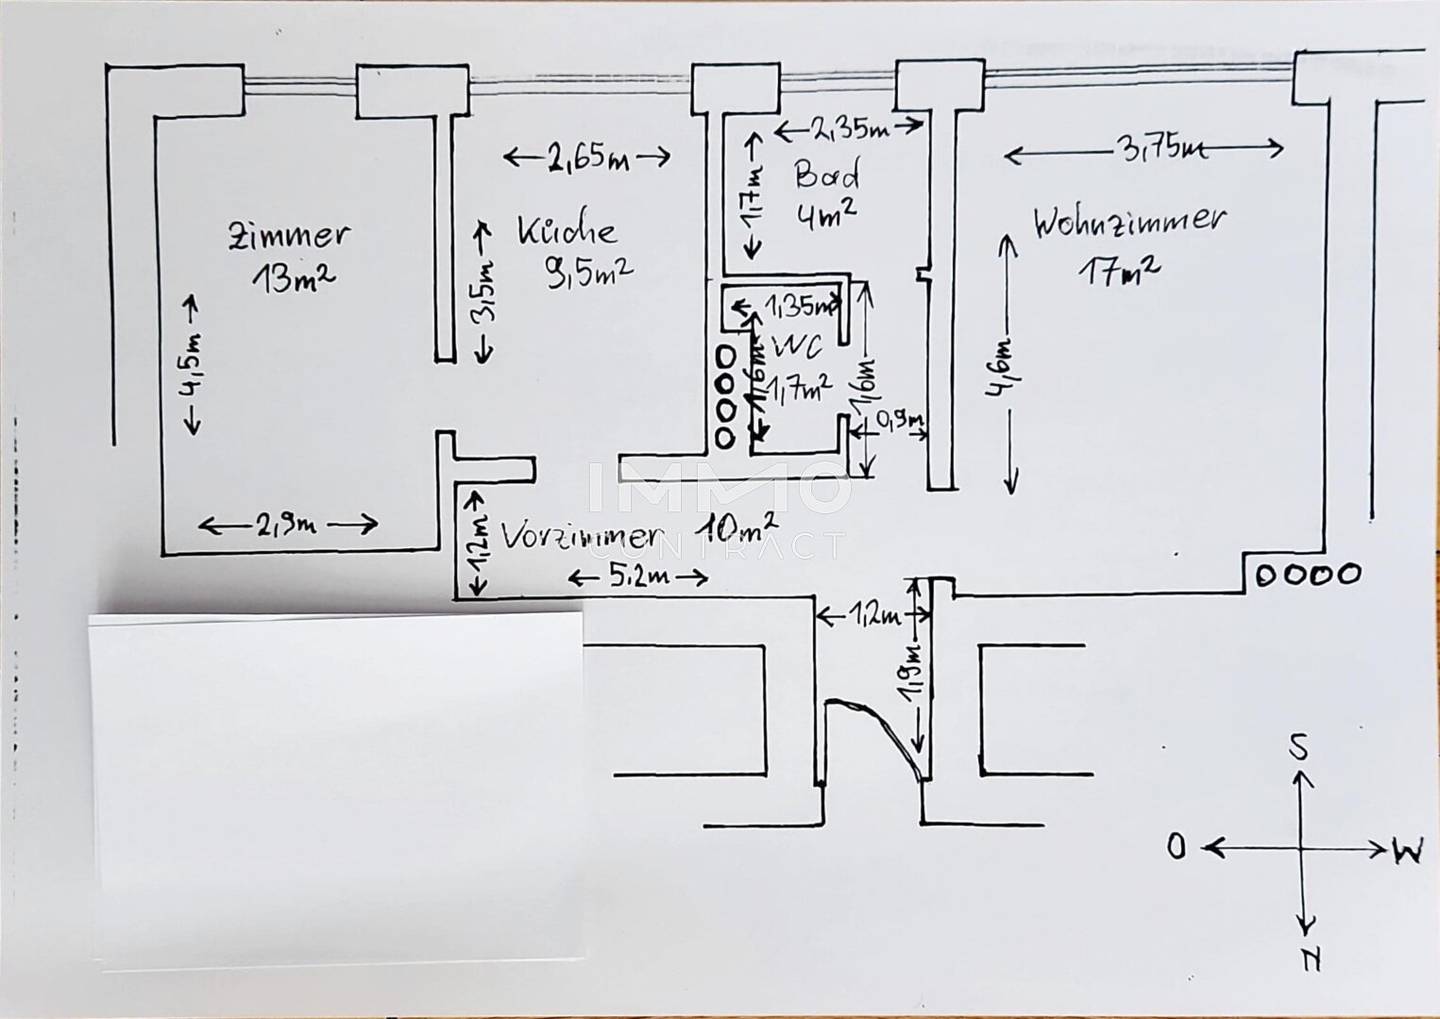 2,35m
2,65m
3,75m
Bad
4m²
1,7m
Zimmer
13m²
Küche
9,5m²
Wohnzimmer
17m²
3,5m
4,5m
1,35m
WC
1,7m²
1,6m
1,6m
0,9m
4,6m
IMMO
CONTRACT
2,9m
1,2m
Vorzimmer 10m²
5,2m
1,2m
1,9m
S
O
W
N